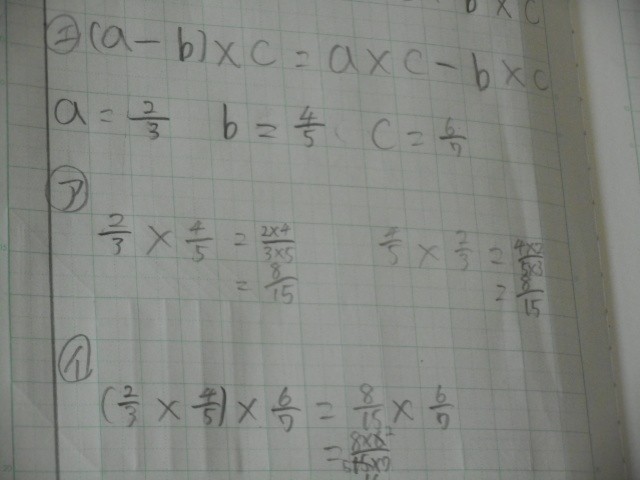 b×c
㋓(a-b)×c=a×c-b×c
a=2/3 b=4/5 c=6/7
㋐
2/3×4/5=2×4/3×5
=8/15
4/5×2/3=
=8/15
㋑
(2/3×4/5)×6/7=8/15×6/7
=